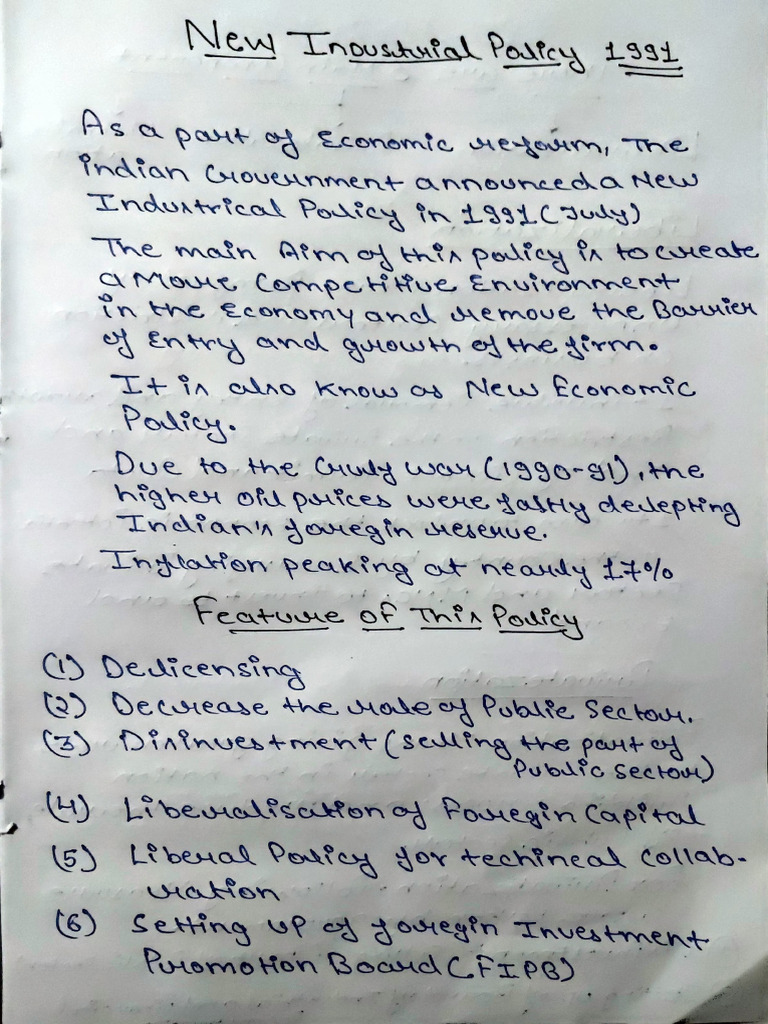 New Inoustrial Policy 1991
As a part of Economic reform, The
indian Government announced a New
Industrical Policy in 1991 (July)
The main Aim of this policy is to create
a More Competitive Environment
in the Economy and remove the Barrier
of Entry and growth of the firm.
It is also Know as New Economic
Policy.
Due to the Gruly war (1990-91), the
higher oil prices were fastly deelepting
Indian's foregin reserve.
Inflation peaking at nearly 17%
Feature of This Policy
(1) Delicensing
(2) Decrease the role of Public Sector.
(3) Disinvestment (Selling the part of
Public Sector)
(4) Liberalisation of Foregin Capital
(5) Liberal Policy for techineal Collab-
ration
(6) Setting up of foregin Investment
Promotion Board (FIPB)